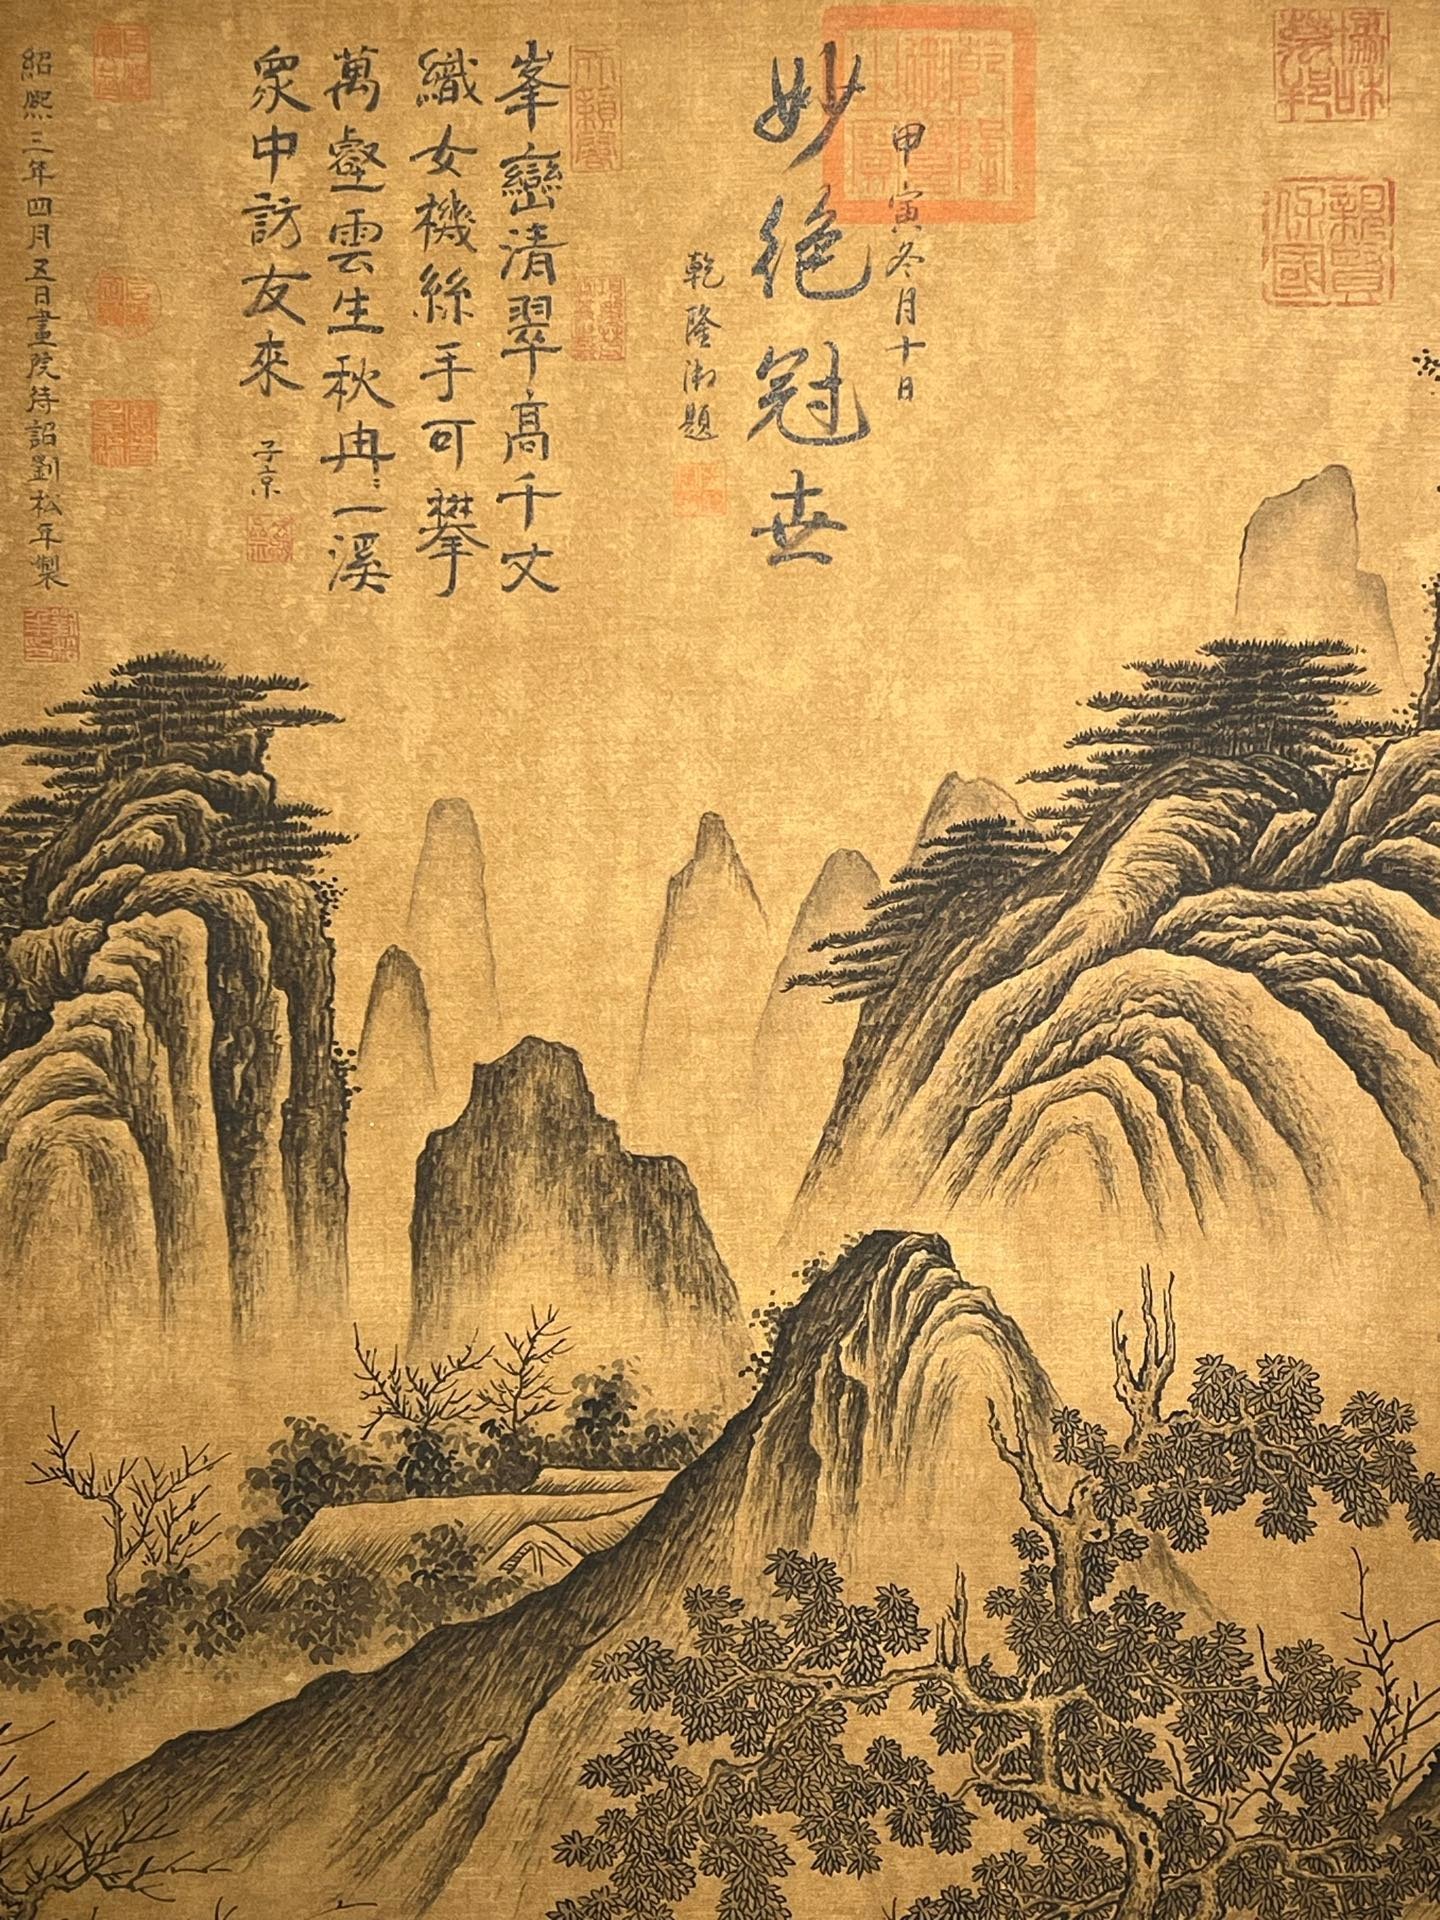 甲寅冬月十日
妙絕冠世
乾隆御題
峯巒清翠高千丈
織女機絲手可攀
萬壑雲生秋冉〻一溪
眾中訪友來
子京
紹熙三年四月五日畫院待詔劉松年製
天籟閣
親賢保國